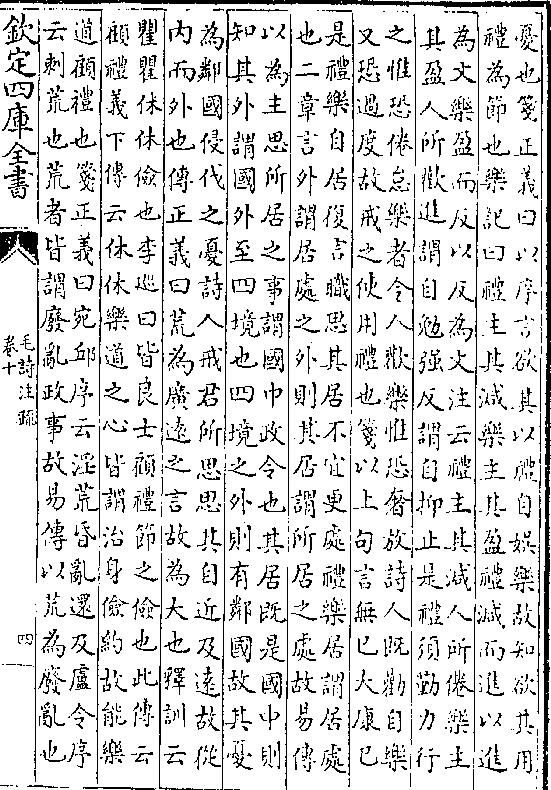 憂也箋正義曰以序言欲其以禮自娛樂故知欲其用
禮為節也樂記曰禮主其減樂主其盈禮減而進以進
為文樂盈而反以反為文注云禮主其減人所倦樂主
其盈人所歡進謂自勉强反謂自抑止是禮須勤力行
之惟恐倦怠樂者令人歡樂惟恐奢放詩人既勸自樂
又恐過度故戒之使用禮也箋以上句言無已大康已
是禮樂自居復言職思其居不宜更處禮樂居謂居處
也二章言外謂居處之外則其居謂所居之處故易傳
以為主思所居之事謂國中政令也其居既是國中則
知其外謂國外至四境也四境之外則有鄰國故其憂
為鄰國侵伐之憂詩人戒君所思思其自近及遠故從
内而外也傳正義曰荒為廣遠之言故為大也釋訓云
瞿瞿休休儉也李廵曰皆良士顧禮節之儉也此傳云
顧禮義下傳云休休樂道之心皆謂治身儉約故能樂
道顧禮也箋正義曰宛邱序云淫荒昏亂還及盧令序
云刺荒也荒者皆謂廢亂政事故易傳以荒為廢亂也
欽定四庫全書
毛詩注疏
卷十
四